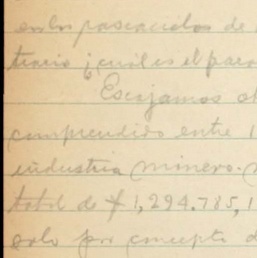 en los pasacielos de
trario ¿cuál es el para
Escojamos
comprendido entre 1
industria minero-
total de $1,294.785,1
solo por concepto d